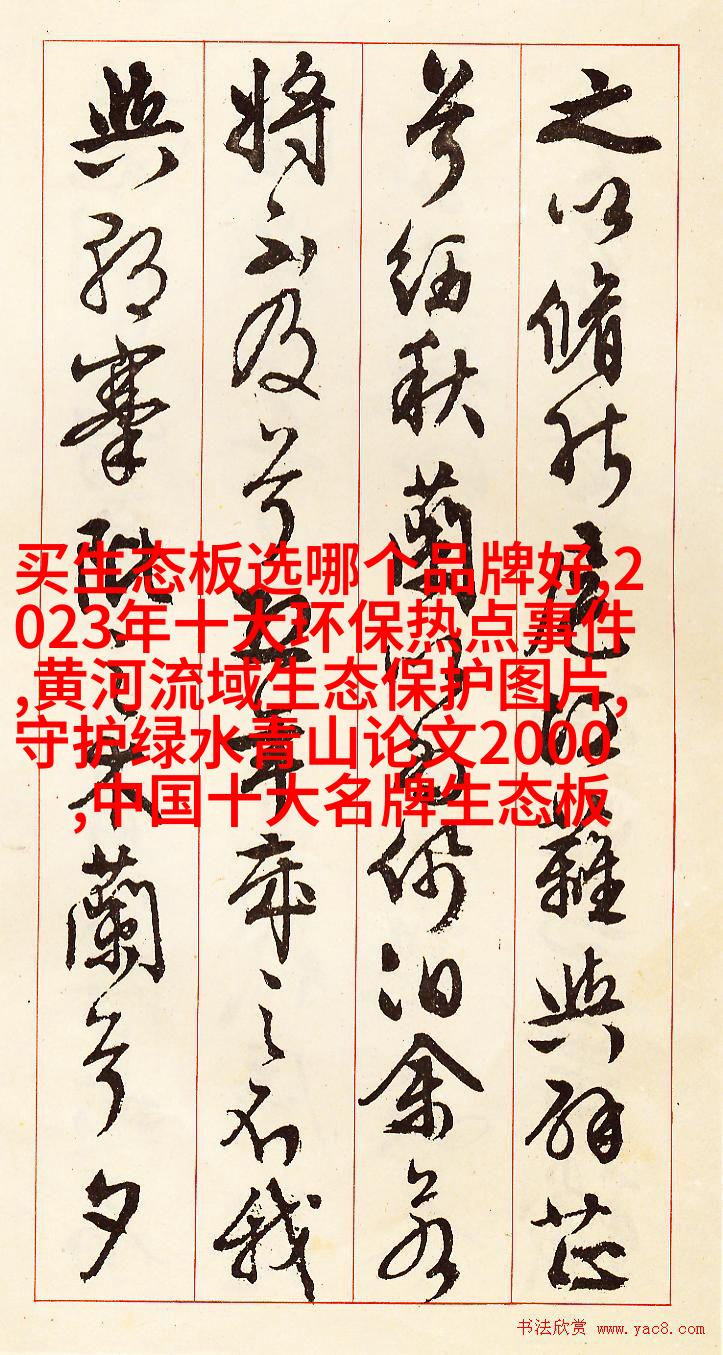 之以脩能扈江離與辟芷
兮紉秋蘭以為佩汩余若
將不及兮恐年歲之不我
與朝搴阰之木蘭兮夕
买生态板选哪个品牌好,2
023年十大环保热点事件
,黄河流域生态保护图片,
守护绿水青山论文2000
,中国十大名牌生态板
书法欣赏 www.yac8.com